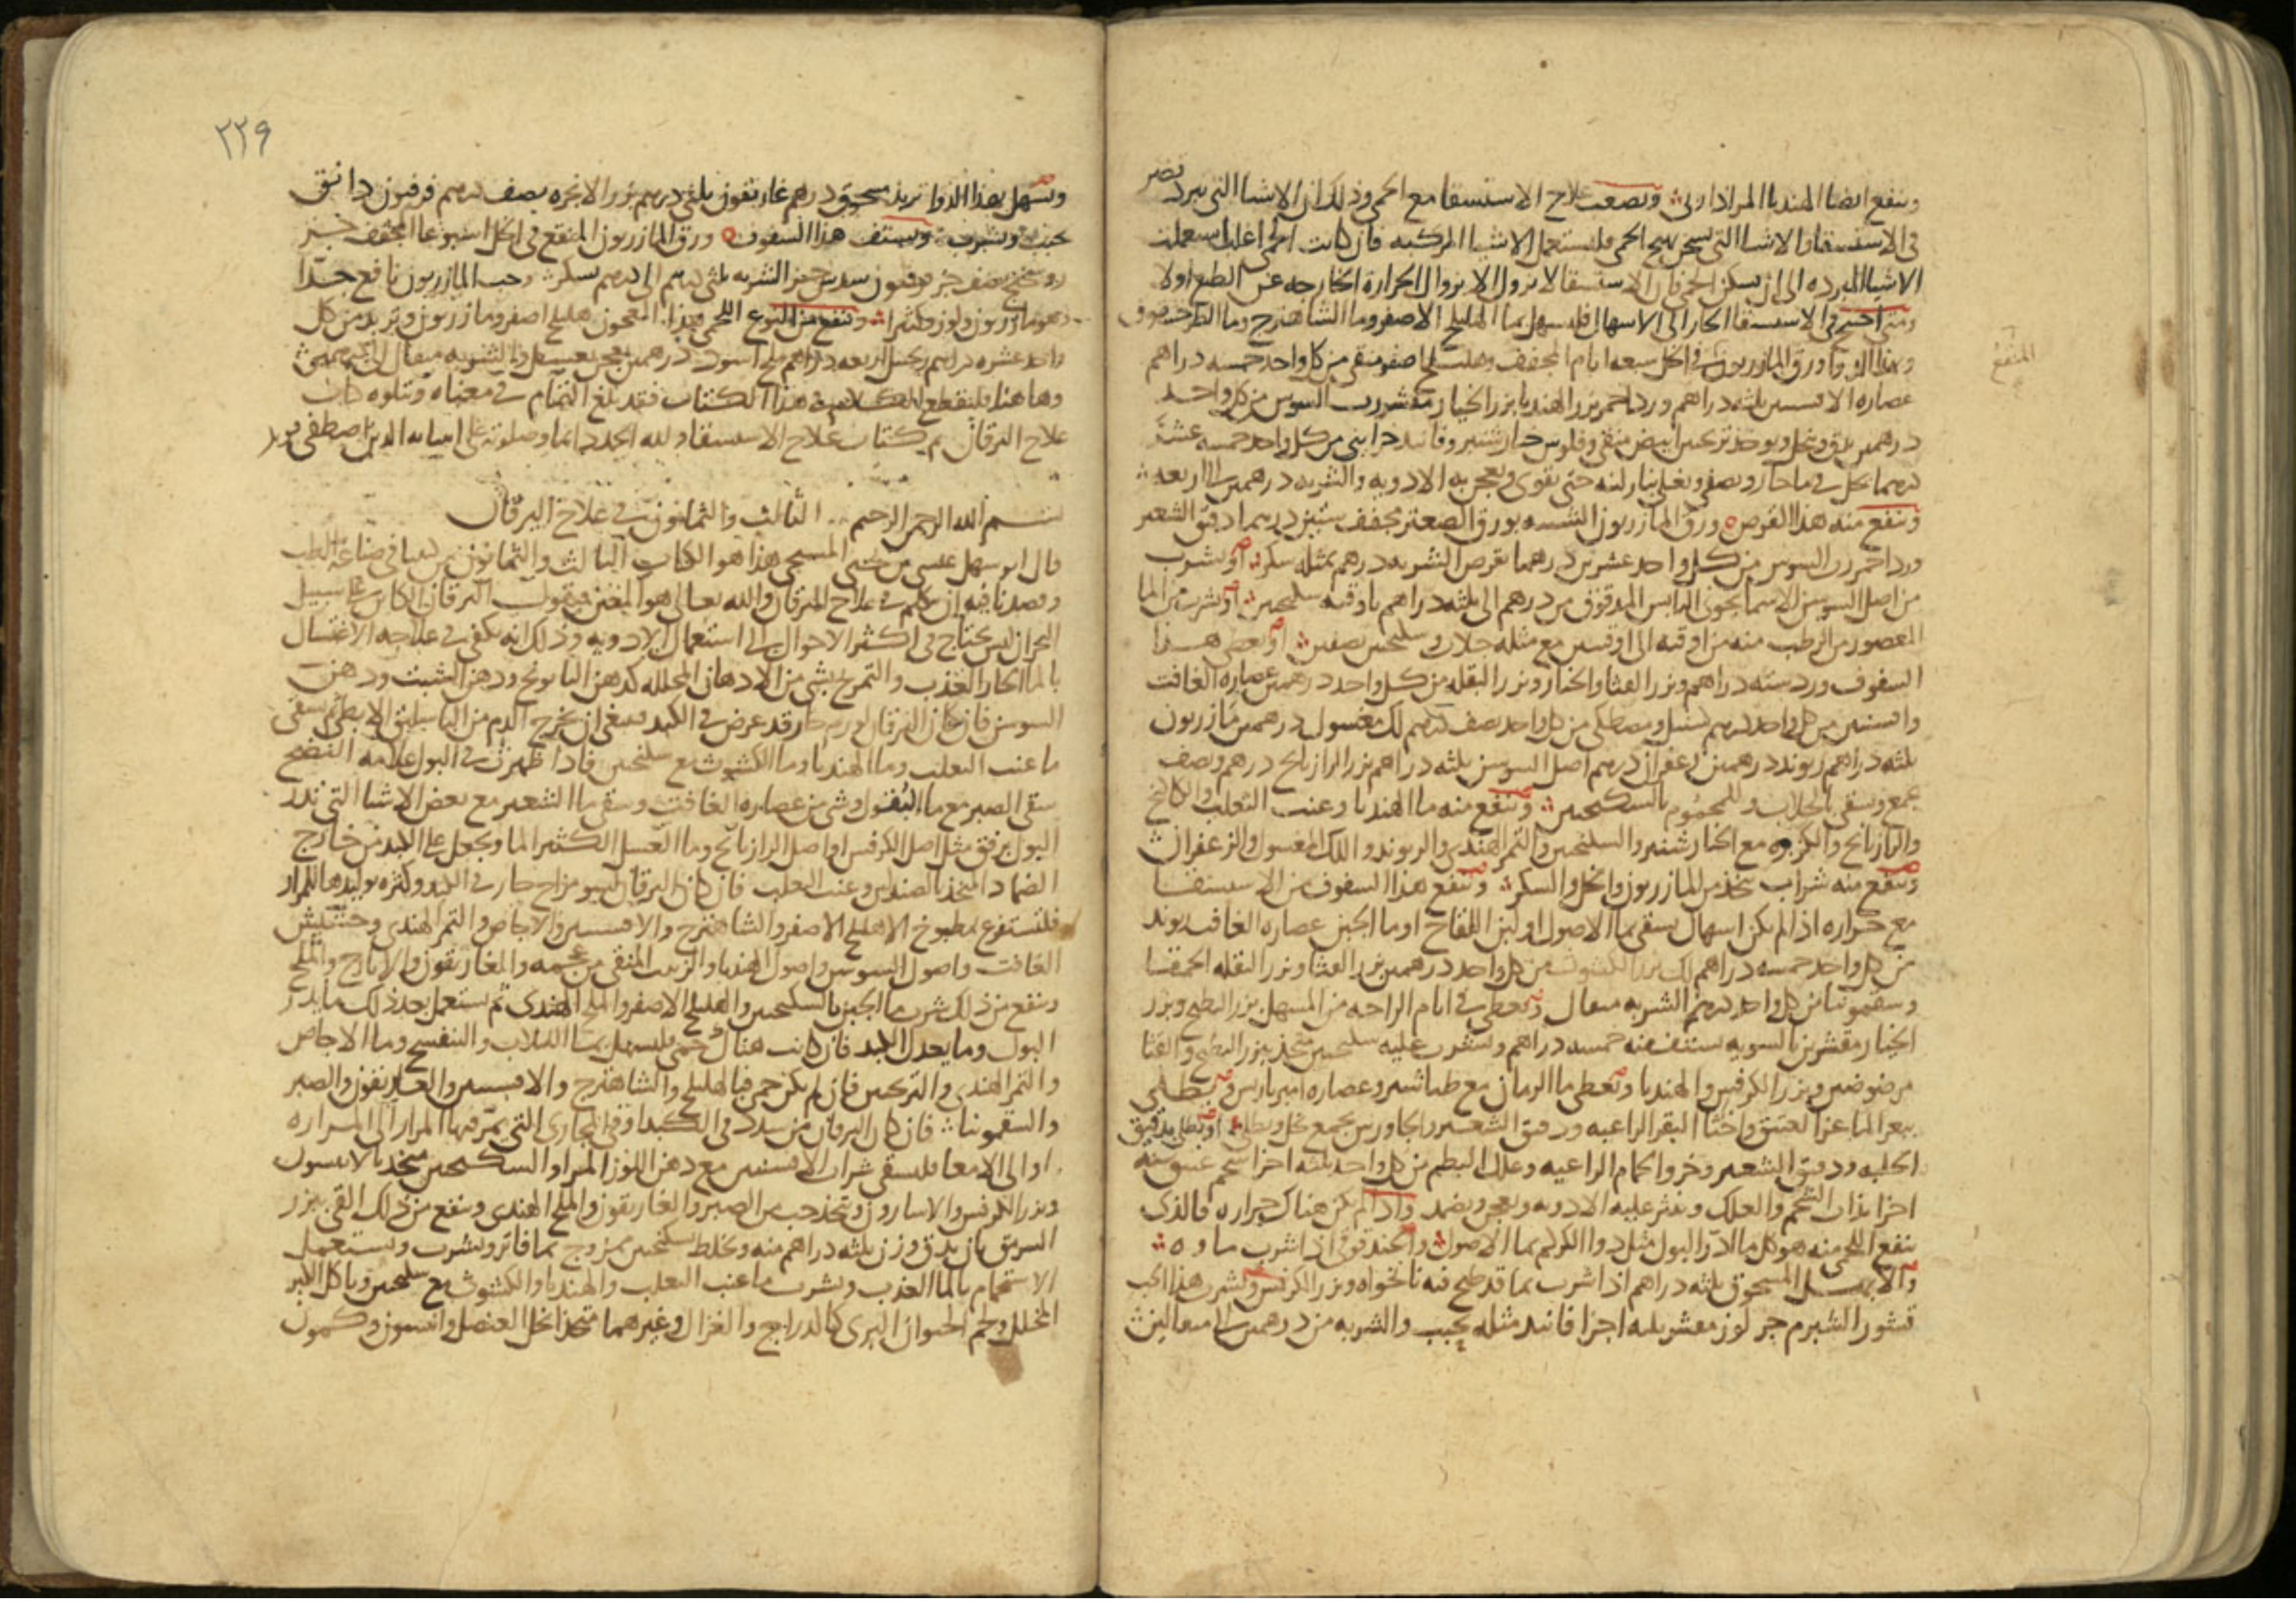 وينفع ايضا الهندبا المر اذا ربى وتصعب علاج الاستسقا مع الحمى وذلك ان الاشيا التى تبرد تضر
فى الاستسقا والاشيا التى تسخن تهيج الحمى فليستعمل الاشيا المركبه فان كانت الحمى اغلب استعملت
الاشيا المبرده الى ان تسكن الحمى فان الاستسقا لا يزول الا بزوال الحرارة الخارجه عن الطبع اولا
ومتى احتيج فى الاستسقا الحار الى الاسهال فليسهل بما الهليلج الاصفر وما الشاهترج وما
وبهذا الدوا ورق المازريون فى الخل سبعه ايام المجفف وهليلج اصفر منقى من كل واحد خمسه دراهم
المنقع
عصاره الافسنتين ثلثه دراهم ورد احمر بزر الهندبا بزر الخيار مقشر رب السوس من كل واحد
درهمين يدق وينخل ويوخذ ترنجبين ابيض منقى وفلوس خيارشنبر وفانيد خزاينى من كل واحد خمسه عشر
درهما يحل فى ما حار ويصفى ويغلى بنار لينه حتى يقوى ويعجن به الادويه والشربه درهمين الى اربعه
وينفع منه هذا القرص ورق المازريون الشبيه بورق الصعتر مجفف ستين درهما دقيق الشعير
ورد احمر رب السوس من كل واحد عشرين درهما يقرص الشربه درهم بمثله سكر او يشرب
من اصل السوسن الاسمانجونى اليابس المدقوق من درهم الى ثلثه دراهم باوقيه سكنجبين او يشرب من الما
المعصور من الرطب منه من اوقيه الى اوقيتين مع مثله جلاب وسكنجبين نصفين او يعطى هذا
السفوف ورد سته دراهم وبزر القثا والخيار وبزر البقله من كل واحد درهمين عصاره الغافت
وافسنتين من كل واحد درهم سنبل ومصطكى من كل واحد نصف درهم لك مغسول درهمين مازريون
ثلثه دراهم ريوند درهمين زعفران درهم اصل السوسن ثلثه دراهم بزر الرازيانج درهم ونصف
يجمع ويسقى بالجلاب وللمحموم بالسكنجبين وينفع منه ما الهندبا وعنب الثعلب والكاكنج
والرازيانج والكزبره مع الخيارشنبر والسكنجبين والتمر الهندى والريوند واللك المغسول والزعفران
وينفع منه شراب يتخذ من المازريون والخل والسكر وينفع هذا السفوف من الاستسقا
مع حراره اذا لم يكن اسهال يسقى بما الاصول او لبن اللقاح او ما الجبن عصاره الغافت ريوند
من كل واحد خمسه دراهم لك بزر الكشوث من كل واحد درهمين بزر القثا وبزر البقله الحمقا
وسقمونيا من كل واحد درهم الشربه مثقال ويعطى فى ايام الراحه من المسهل بزر البطيخ وبزر
الخيار مقشرين بالسويه يستف منه خمسه دراهم ويشرب عليه سكنجبين متخذ ببزر البطيخ والقثا
مرضوضين وبزر الكرفس والهندبا ويعطى ما الرمان مع طباشير وعصاره اميرباريس ويطلى
ببعر الماعز العتيق واخثا البقر الراعيه ودقيق الشعير والجاورس يجمع بخل ويطلى او يطلى بدقيق
الحلبه ودقيق الشعير وخرو الحمام الراعيه وعلك البطم من كل واحد ثلثه اجزا شحم عتيق سته
اجزا يذاب الشحم والعلك وينثر عليه الادويه ويعجن ويضمد واذا لم يكن هناك حراره فالذى
ينفع اللحمى منه هو كل ما ادر البول مثل دوا الكركم بما الاصول والجندقوقى اذا شرب ماوه
والانيسون المسحوق ثلثه دراهم اذا شرب بما قد طبخ فيه نانخواه وبزر الكرفس ويشرب هذا الحب
قشور الشبرم جز لوز مقشر ثلثه اجزا فانيد مثله يحبب والشربه من درهمين الى مثقالين
٢٢٩
ويسهل بهذا الدوا تربد مسحوق درهم غاريقون ثلثى درهم بزر الانجره نصف درهم فرفيون دانق
يحبب ويشرب ويستف هذا السفوف ورق المازريون المنقع فى الخل اسبوعا المجفف جز
نصف جز فرفيون سدس جز الشربه ثلثى درهم الى درهم بسكر وحب المازريون نافع جدا
وهو مازريون ولوز وكثيرا وينفع من النوع اللحمى هذا المعجون هليلج اصفر ومازريون وتربد من كل
واحد عشره دراهم اربعه دراهم ملح اسود درهمين يعجن بعسل والشربه مثقال الى درهمين
وهاهنا فلنقطع الكلام فى هذا الكتاب فقد بلغ التمام فى معناه ويتلوه كتاب
علاج اليرقان تم كتاب علاج الاستسقا ولله الحمد دايما وصلوته على انبيايه الذين اصطفى
بسم الله الرحمن الرحيم الثالث والثمانون فى علاج اليرقان
قال ابو سهل عيسى بن يحيى المسيحى هذا هو الكتاب الثالث والثمانون من كتبنا فى صناعة الطب
وقصدنا فيه ان نتكلم فى علاج اليرقان والله تعالى هو المعين فنقول اليرقان الكاين على سبيل
البحران ليس يحتاج فى اكثر الاحوال الى استعمال الادويه وذلك انه يكفى فى علاجه الاغتسال
بالما الحار العذب والتمريخ بشى من الادهان المحلله كدهن البابونج ودهن الشبث ودهن
السوسن فان كان اليرقان لورم حار قد عرض فى الكبد فينبغى ان يخرج الدم من الباسليق الابطى ثم يسقى
ما عنب الثعلب وما الهندبا وما الكشوث مع سكنجبين فاذا ظهرت فى البول علامه النضج
سقى الصبر مع ما البقول وشى من عصاره الغافت وسقى ما الشعير مع بعض الاشيا التى تدر
البول برفق مثل اصل الكرفس او اصل الرازيانج وما العسل الكثير الما ويجعل على الكبد من خارج
الضماد المتخذ بالصندلين وعنب الثعلب فان كان اليرقان لسو مزاج حار فى الكبد وكثره توليدها للمرار
فلتستفرغ بمطبوخ الاهليلج الاصفر والشاهترج والافسنتين والاجاص والتمر الهندى وحشيش
الغافت واصول السوس واصول الهندبا والزبيب المنقى من عجمه والغاريقون والايارج والملح
وينفع من ذلك شرب ما الجبن بالسكنجبين والهليلج الاصفر والملح الهندى ثم يستعمل بعد ذلك ما يدر
البول وما يعدل الكبد فان كانت هناك حمى فليسهل بما اللبلاب والبنفسج وما الاجاص
والتمر الهندى والترنجبين فان لم يكن حمى فبالهليلج والشاهترج والافسنتين والغاريقون والصبر
والسقمونيا فان كان اليرقان من سدد فى الكبد او فى المجارى التى يمر فيها المرار الى المراره
او الى الامعا فليسقى شراب الافسنتين مع دهن اللوز المر او السكنجبين متخذ بالانيسون
وبزر الكرفس والاسارون ويتخذ حب من الصبر والغاريقون والملح الهندى وينفع من ذلك القى ببزر
السرمق بان يدق وزن ثلثه دراهم منه ويخلط بسكنجبين ممزوج بما فاتر ويشرب ويستعمل
الاستحمام بالما العذب ويشرب ما عنب الثعلب والهندبا والكشوث مع سكنجبين وياكل الكبر
المخلل ولحم الحيوان البرى كالدراج والغزال وغيرهما متخذ بخل العنصل وانيسون وكمون